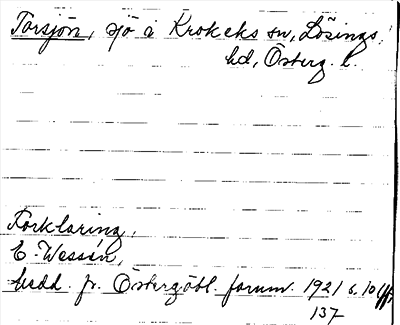 Torsjön, sjö i Krokeks sn, Lösings
hd, Österg. l.
Förklaring,
E. Wessén,
Medd. fr. Östergötl. fornm. 1921 s. 10 ff,
137